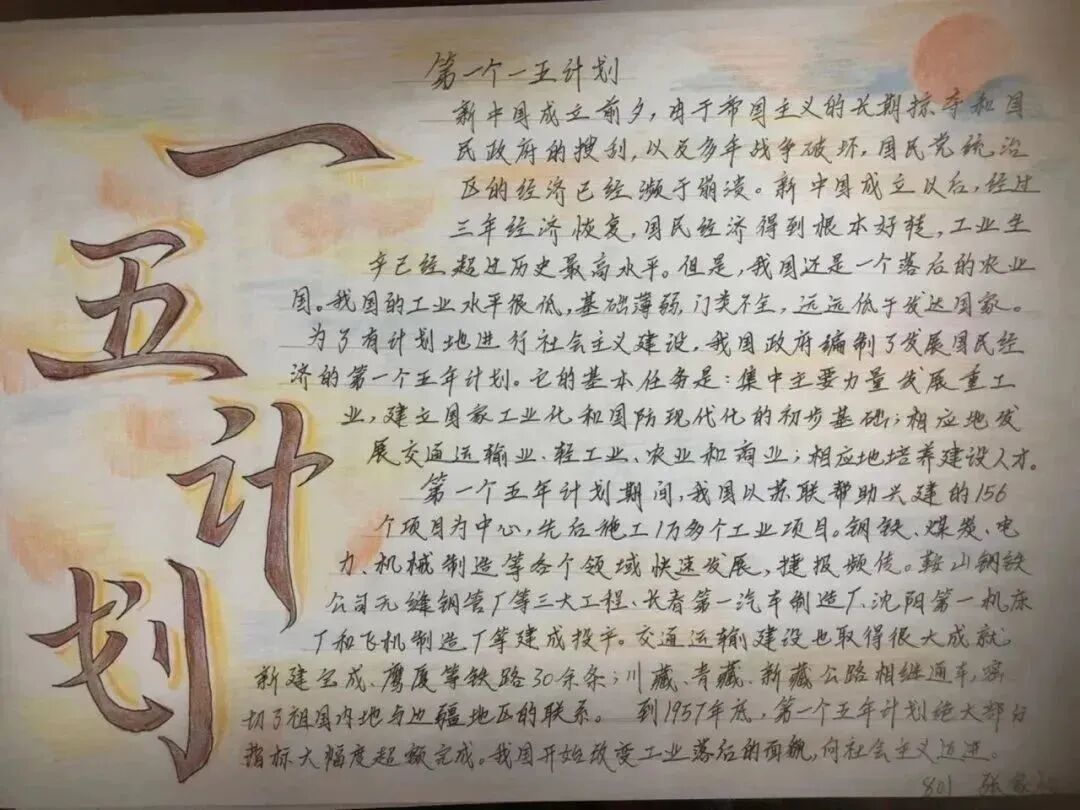 一五计划
第一个一五计划
新中国成立前夕，由于帝国主义的长期掠夺和国
民政府的搜刮，以及多年战争破坏，国民党统治
区的经济已经濒于崩溃。新中国成立以后，经过
三年经济恢复，国民经济得到根本好转，工业生
产已经超过历史最高水平。但是，我国还是一个落后的农业
国。我国的工业水平很低，基础薄弱，门类不全，远远低于发达国家。
为了有计划地进行社会主义建设，我国政府编制了发展国民经
济的第一个五年计划。它的基本任务是：集中主要力量发展重工
业，建立国家工业化和国防现代化的初步基础；相应地发
展交通运输业、轻工业、农业和商业；相应地培养建设人才。
第一个五年计划期间，我国以苏联帮助兴建的156
个项目为中心，先后施工1万多个工业项目。钢铁、煤炭、电
力、机械制造等各个领域快速发展，捷报频传。鞍山钢铁
公司无缝钢管厂等三大工程、长春第一汽车制造厂、沈阳第一机床
厂和飞机制造厂等建成投产。交通运输建设也取得很大成就，
新建宝成、鹰厦等铁路30余条；川藏、青藏、新藏公路相继通车，密
切了祖国内地与边疆地区的联系。 到1957年底，第一个五年计划绝大部分
指标大幅度超额完成。我国开始改变工业落后的面貌，向社会主义迈进。
801 张